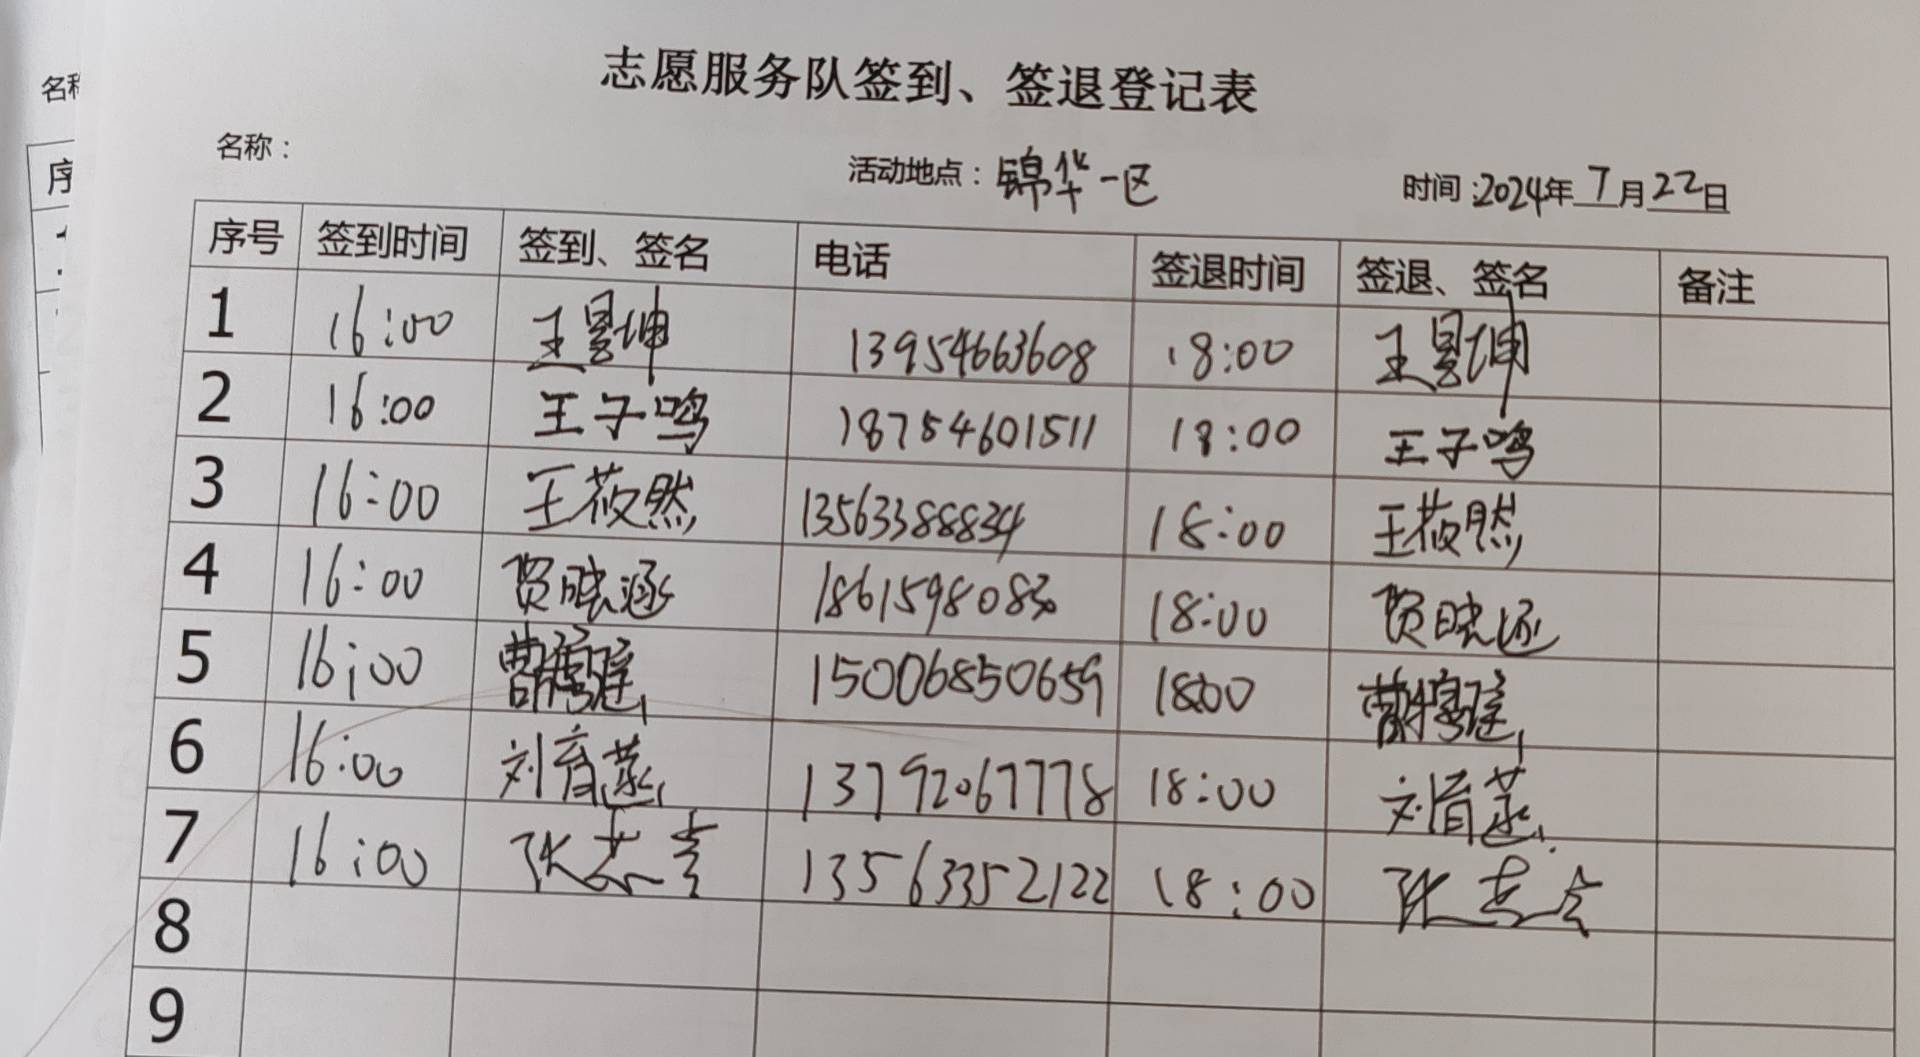 志愿服务队签到、签退登记表
名称：
活动地点：锦华一区
时间：2024年7月22日
序号 签到时间 签到、签名 电话 签退时间 签退、签名 备注
1 16:00 王昱坤 13954663608 18:00 王昱坤
2 16:00 王子鸣 18754601511 18:00 王子鸣
3 16:00 王莜然 13563388834 18:00 王莜然
4 16:00 贾晓涵 18:00 贾晓涵
5 16:00 15006850659 18:00
6 16:00 刘育菡 13792067778 18:00 刘育菡
7 16:00 张志言 13563352122 18:00 张志言
8
9
名称
序